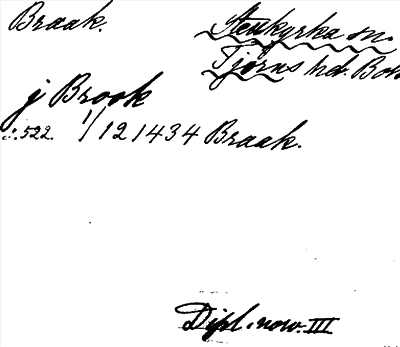 Braak.
Stenkyrka sn.
Tjörns hd. Boh
j Brook
s. 522. 1/12 1434 Braak.
Dipl. norv. III